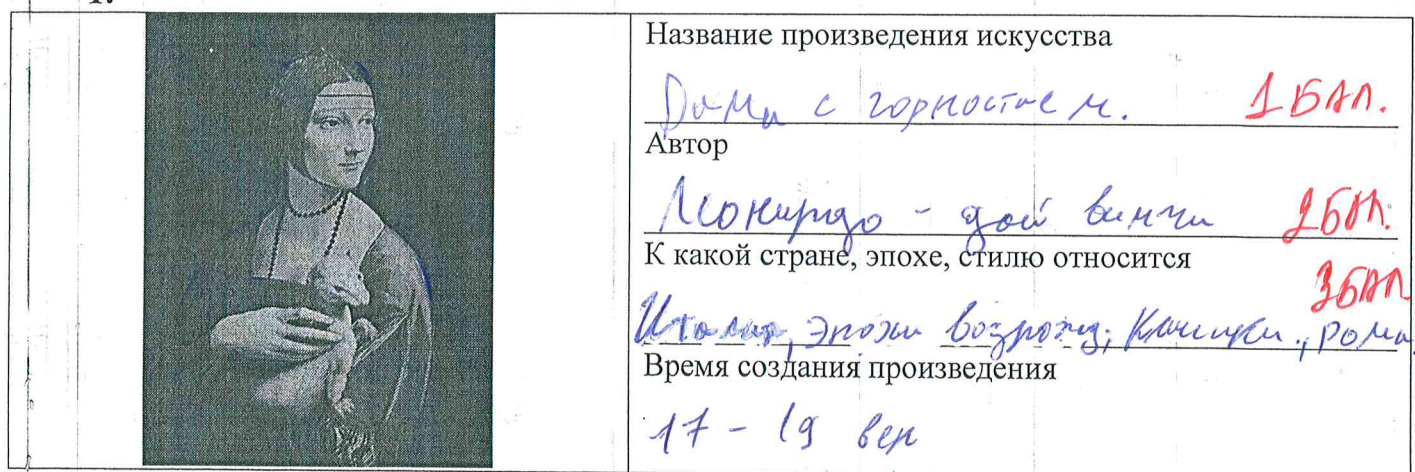 1.
Название произведения искусства
Дама с горностаем. 1 БАЛ.
Автор
Леонардо - дой винчи 2 БАЛ.
К какой стране, эпохе, стилю относится
3 БАЛ
Италия, эпохи возрожд;
Время создания произведения
17 - 19 век